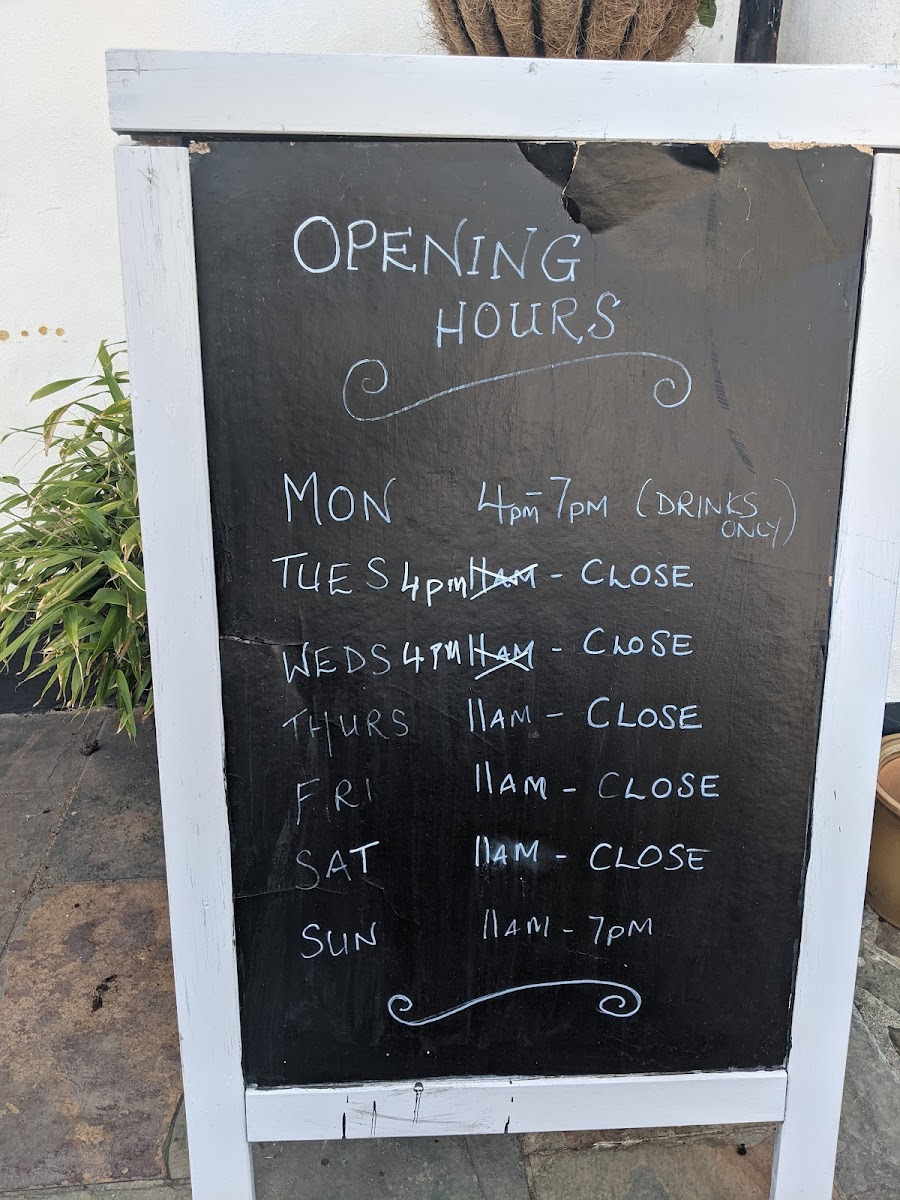 OPENING
HOURS
MON 4pm-7pm (DRINKS
ONLY)
TUES 4pm 11AM - CLOSE
WEDS 4PM 11AM - CLOSE
THURS 11AM - CLOSE
FRI 11AM - CLOSE
SAT 11AM - CLOSE
SUN 11AM - 7PM